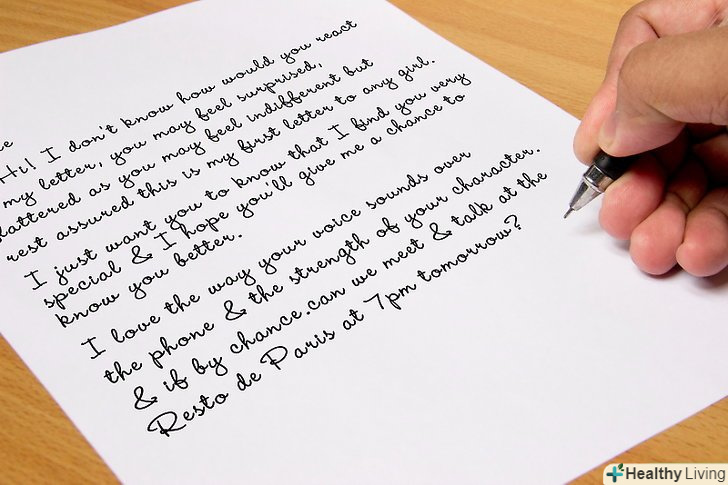 e
Hi! I don't know how would you react
my letter, you may feel surprised,
flattered as you may feel indifferent but
rest assured this is my first letter to any girl.
I just want you to know that I find you very
special & I hope you'll give me a chance to
know you better.
I love the way your voice sounds over
the phone & the strength of your character.
& if by chance.can we meet & talk at the
Resto de Paris at 7pm tomorrow?
Healthy Living